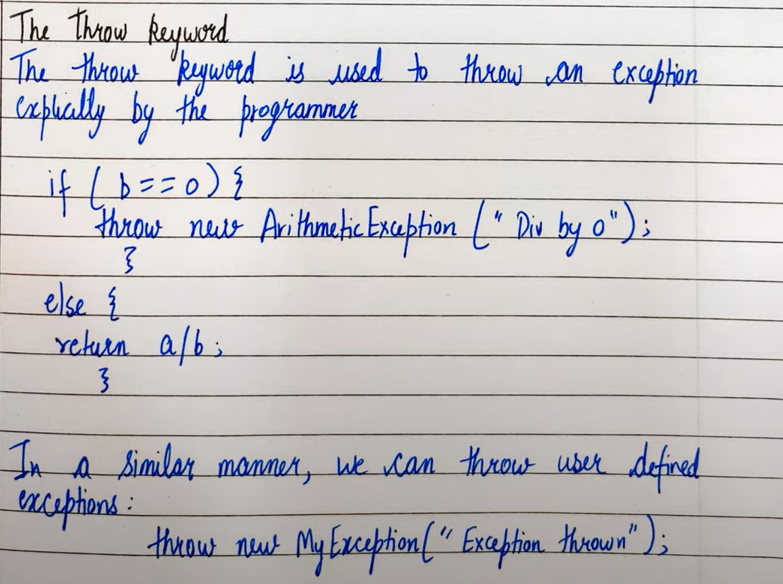 The throw keyword
The throw keyword is used to throw an exception
explically by the programmer
if ( b==0) {
throw new ArithmeticException (" Div by 0");
}
else {
return a/b;
}
In a similar manner, we can throw user defined
exceptions:
throw new MyException(" Exception thrown");